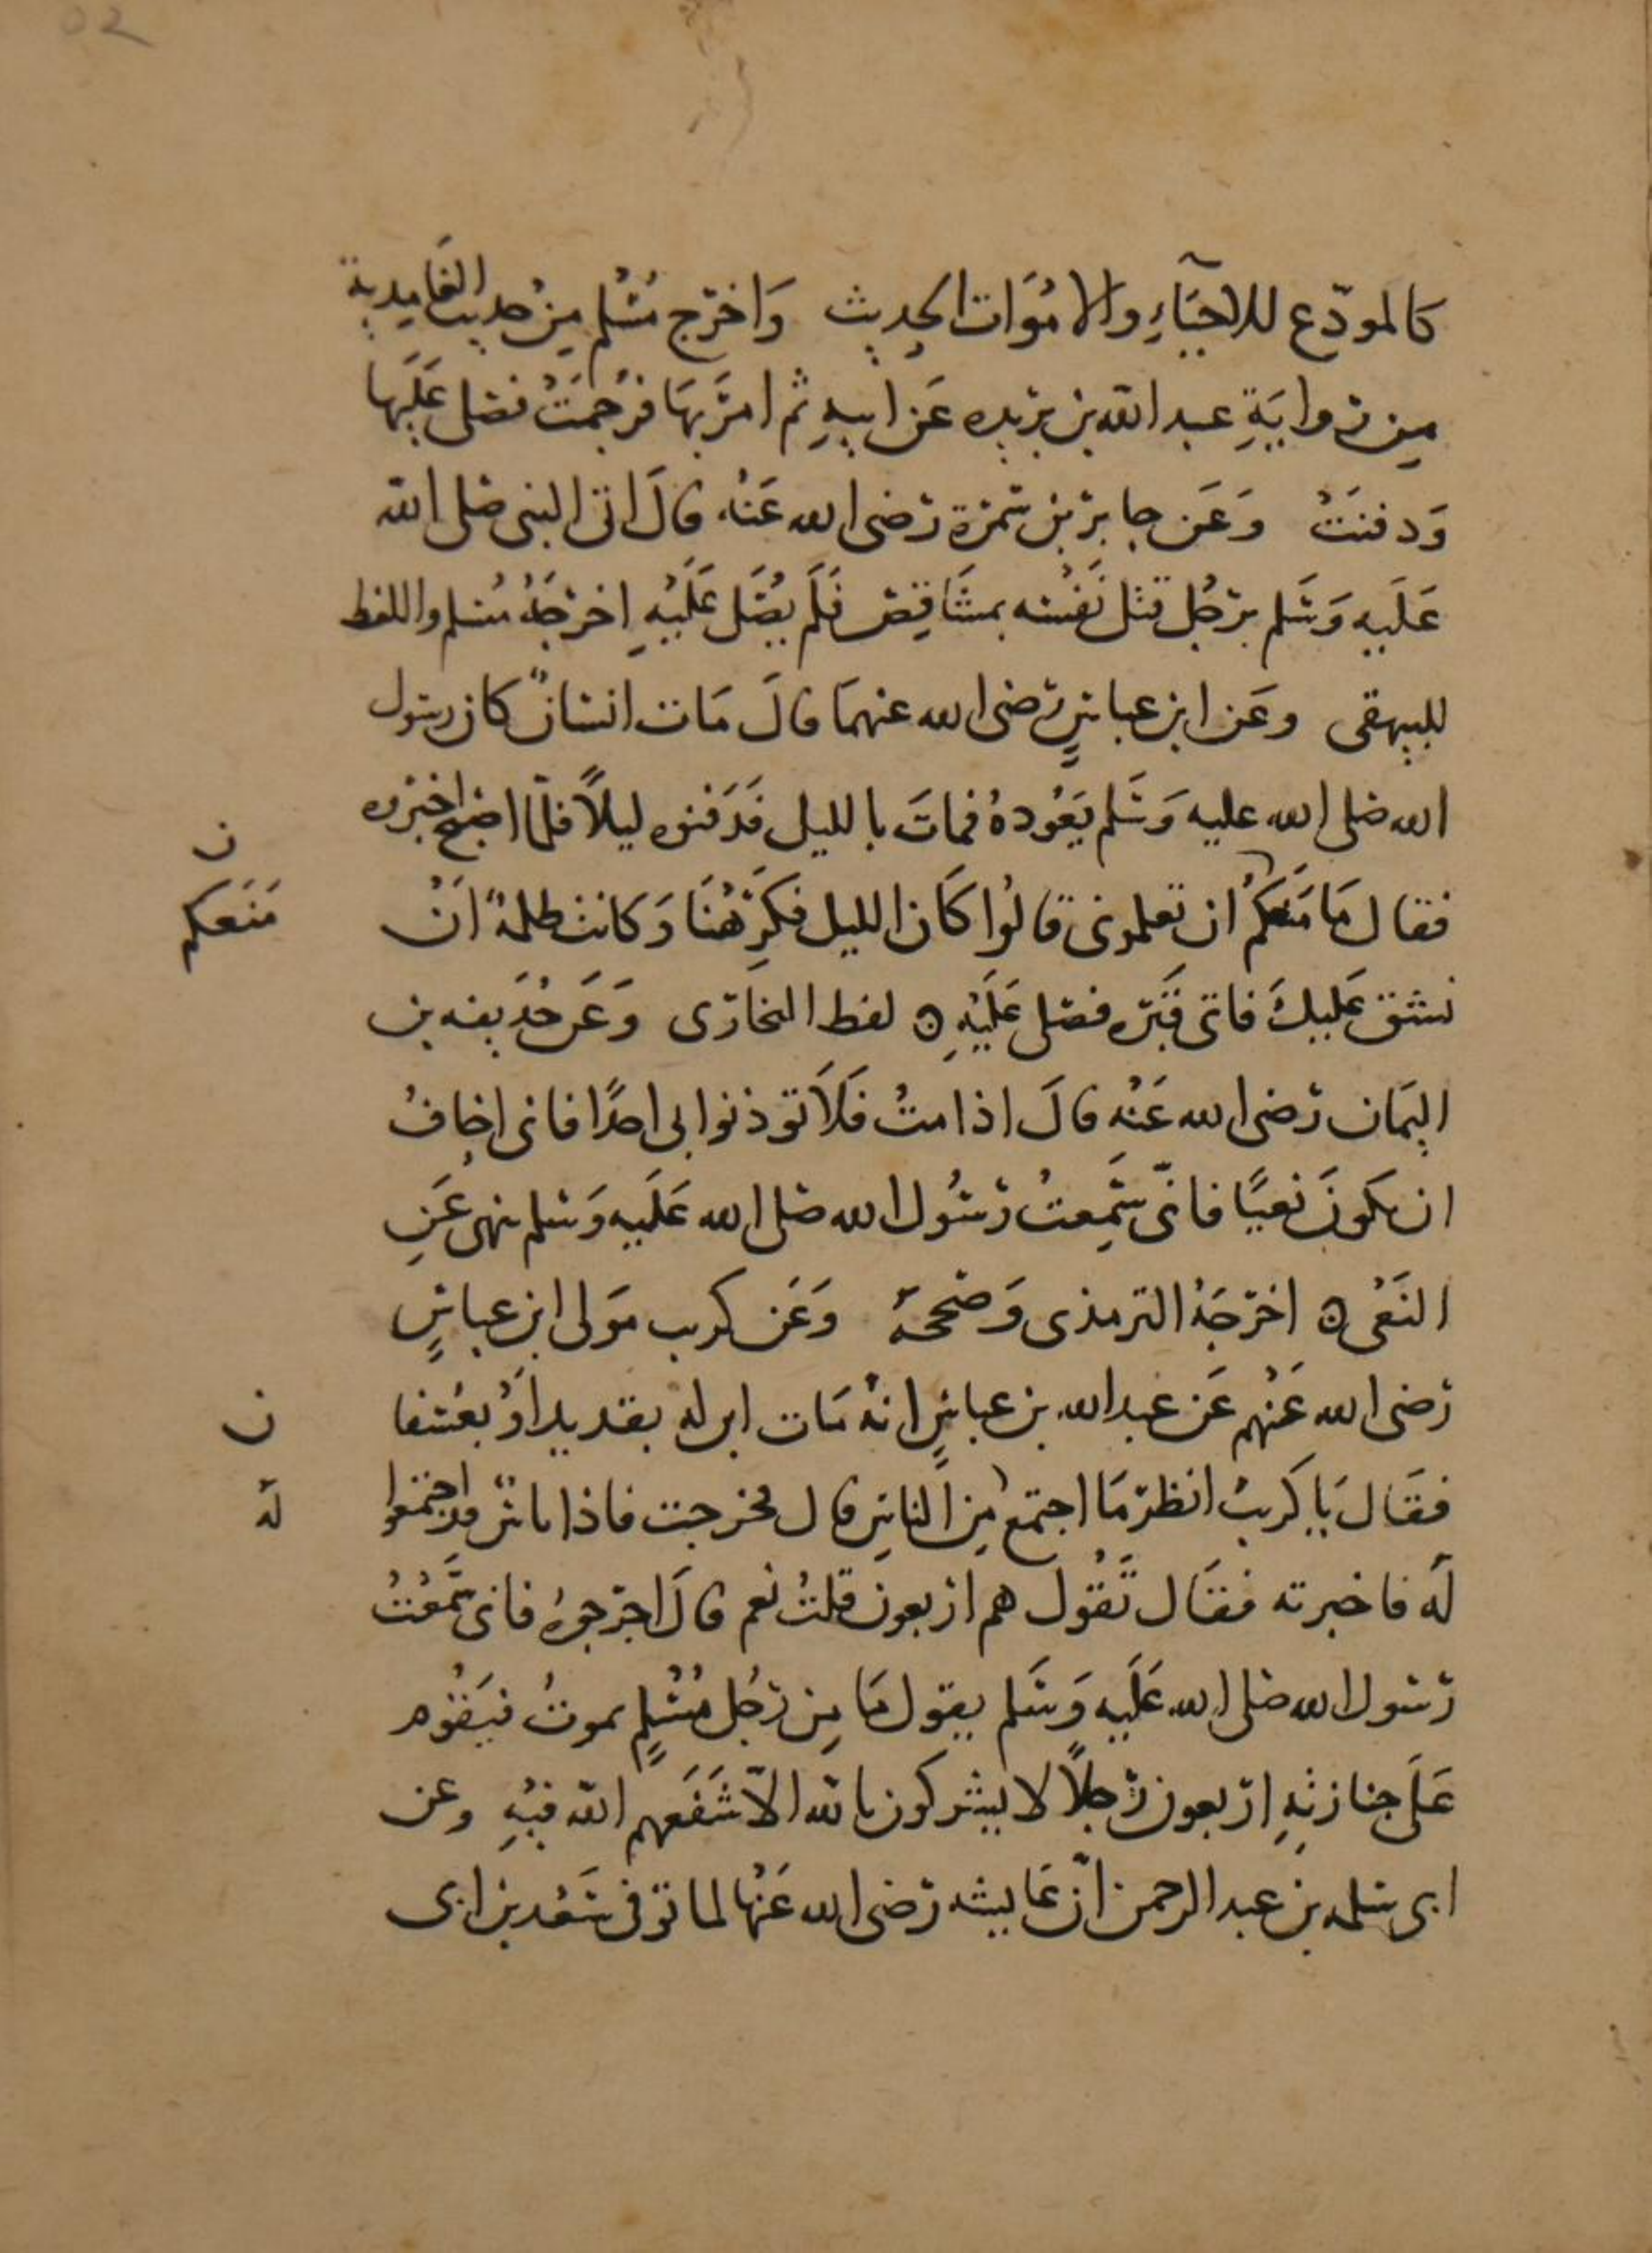 كالمودّع للاحيَآءِ والامُوَات الحديث وَاخرَج مُسْلم مِنْ حديث الغَامِدية
مِن روايَةِ عبد الله بن بريده عَن ابيهِ ثم امرَ بهَا فرُجمَتْ فصَلى عَلَيها
وَدفنَتْ وَعَن جابر بْن سَمرَة رَضى الله عَنْه قالَ اتى النبى صَلى الله
عَلَيه وَسَلم برَجُل قتل نَفْسَه بمشَاقِصَ فَلَم يُصَل عَلَيْهِ اخرَجَهُ مُسْلم واللفظ
للبيهقى وعَن ابن عباسٍ رَضى الله عنهمَا قالَ مَات انسَانٌ كان رسول
الله صَلى الله عليه وَسَلم يَعُودهُ فمات بالليل فَدَفَنوه ليلًا فلمّا اصبحَ اخبَروه
فقال مَا مَنَعَكمْ ان تعلمونى قالوُا كَان الليل فكَرِهْنَا وَكانت ظلمةٌ انْ
نشق عَليكَ فاتى قَبْرَه فصَلى عَلَيْهِ ۞ لفظ البخارَى وَعَن حُذَيفه بن
اليمَان رَضى الله عَنْه قالَ اذا متُ فَلَا توذنوا بى احدًا فانى اخافُ
ان يكونَ نعيًا فانّى سَمِعتُ رَسُول الله صَلى الله عَلَيه وَسَلم ينهى عَنِ
النَعْى ۞ اخرَجَهُ الترمذى وَصَححَهُ وَعَن كريب مَولى ابن عباسٍ
رَضى الله عَنْهم عَن عَبد الله بن عباسٍ انهُ مَات ابن له بقديد اوْ بعُسْفا
ن
فقَال يَا كَريبُ انظر مَا اجتمَع مِن الناسِ قال فخرجت فاذا ناسٌ قد اجتمعُوا
لَه
لَه فاخبرته فقَال تَقُول هم اربعون قلتُ نعم قالَ اخرجوهُ فانى سَمعْتُ
رَسُول الله صَلى الله عَلَيه وَسَلم يقول مَا مِن رَجُل مُسْلمٍ يموتُ فيَقوُم
عَلَى جنازتهِ اربعون رَجلًا لا يشركون بالله الاّ شَفعَهم الله فيْهِ وعن
ابى سَلمه بن عبد الرحمن انّ عَايشه رَضى الله عَنْها لما توفى سَعْد بن ابى
ن
مَنَعكم